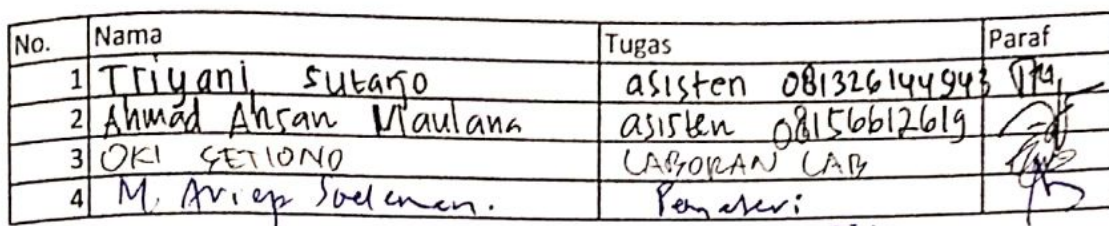 No. Nama Tugas Paraf
1 Triyani Sutarjo asisten 081326144943
2 Ahmad Ahsan Maulana asisten 08156612619
3 OKI SETIONO LABORAN LAB
4 M. Ariep Soeleman. Pemateri